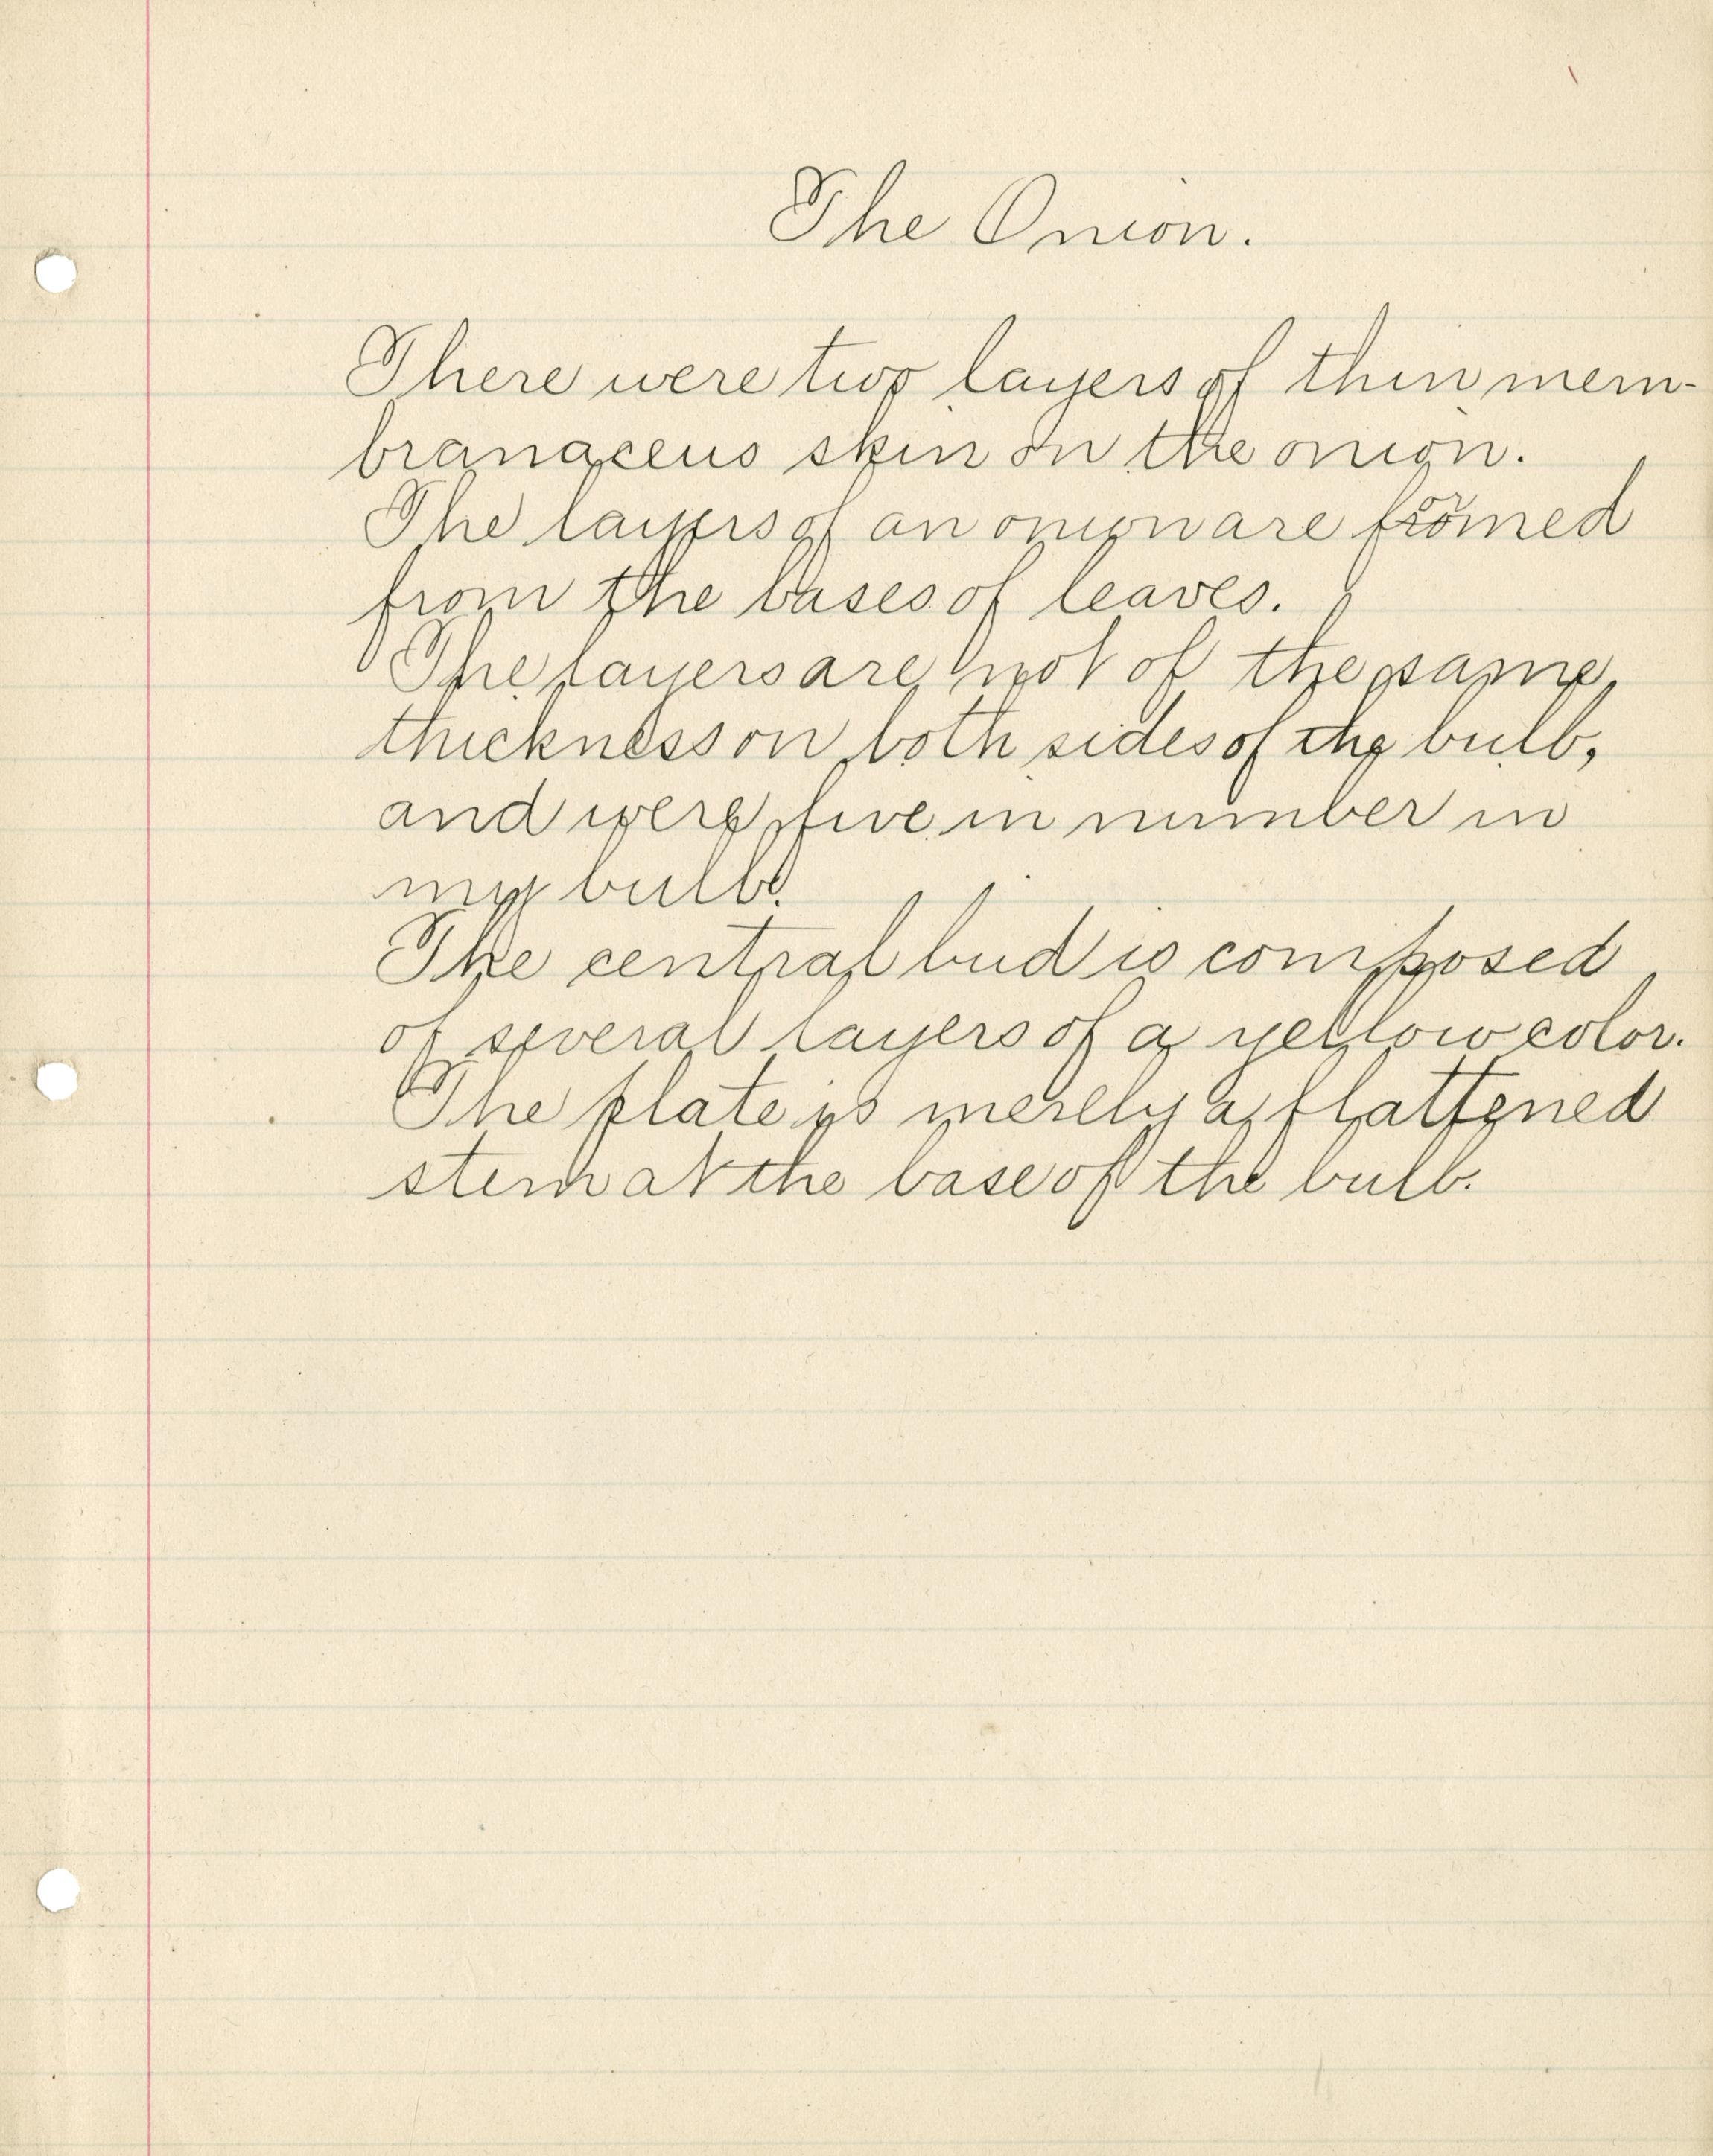 The Onion.
There were two layers of thin mem-
branaceus skin on the onion.
The layers of an onion are fromed
from the bases of leaves.
The layers are not of the same
thickness on both sides of the bulb,
and were five in number in
my bulb.
The central bud is composed
of several layers of a yellow color.
The plate is merely a flattened
stem at the base of the bulb.